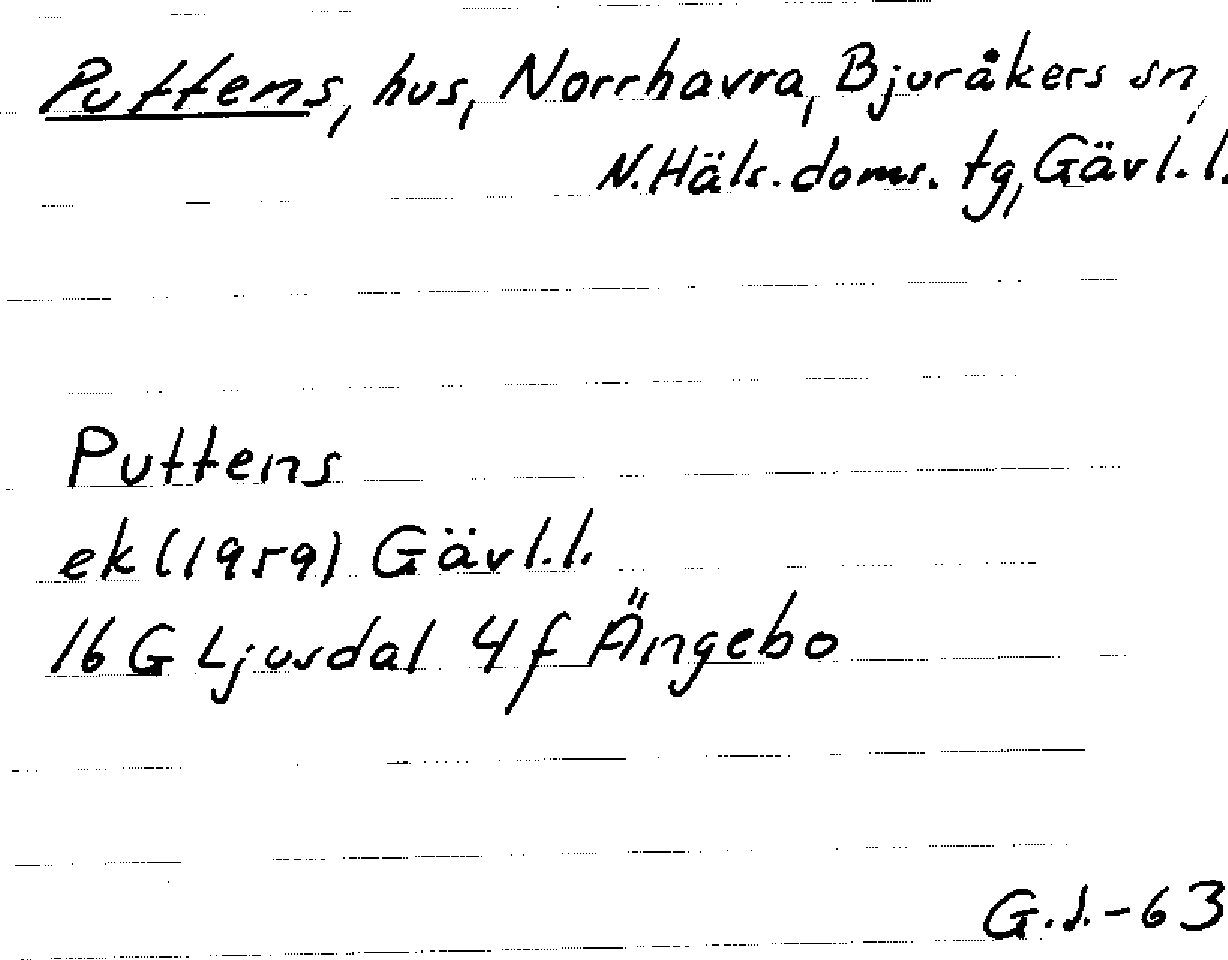 Puttens, hus, Norrhavra, Bjuråkers sn,
N. Häls. doms. tg, Gävl. l.
Puttens
ek (1959) Gävl. l.
16 G Ljusdal 4 f Ängebo
G.S.-63